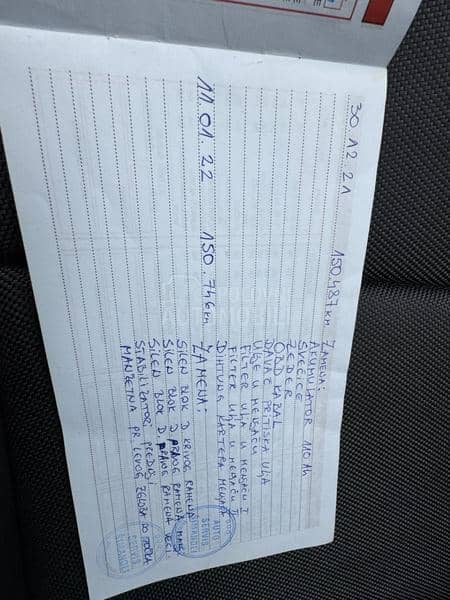 30.12.21 150.487 km ZAMENA:
AKUMULATOR 110 Ah
SVEĆICE
ZEDER
ODD KABAL
DAVAČ PRITISKA ULJA
ULJE U MENJAČU
FILTER ULJA U MENJAČU I
FILTER ULJA U MENJAČU II
DIHTUNG KARTERA MENJAČA
11.01.22 150.746 km ZAMENA:
SILEN BLOK D KRIVOG RAMENA
SILEN BLOK D PRAVOG RAMENA MANJI
SILEN BLOK D PRAVOG RAMENA VEĆI
STABILIZATOR PREDNJI
MANŽETNA PR LEVOG ZGLOBA DO TOČKA
AUTO
SERVIS